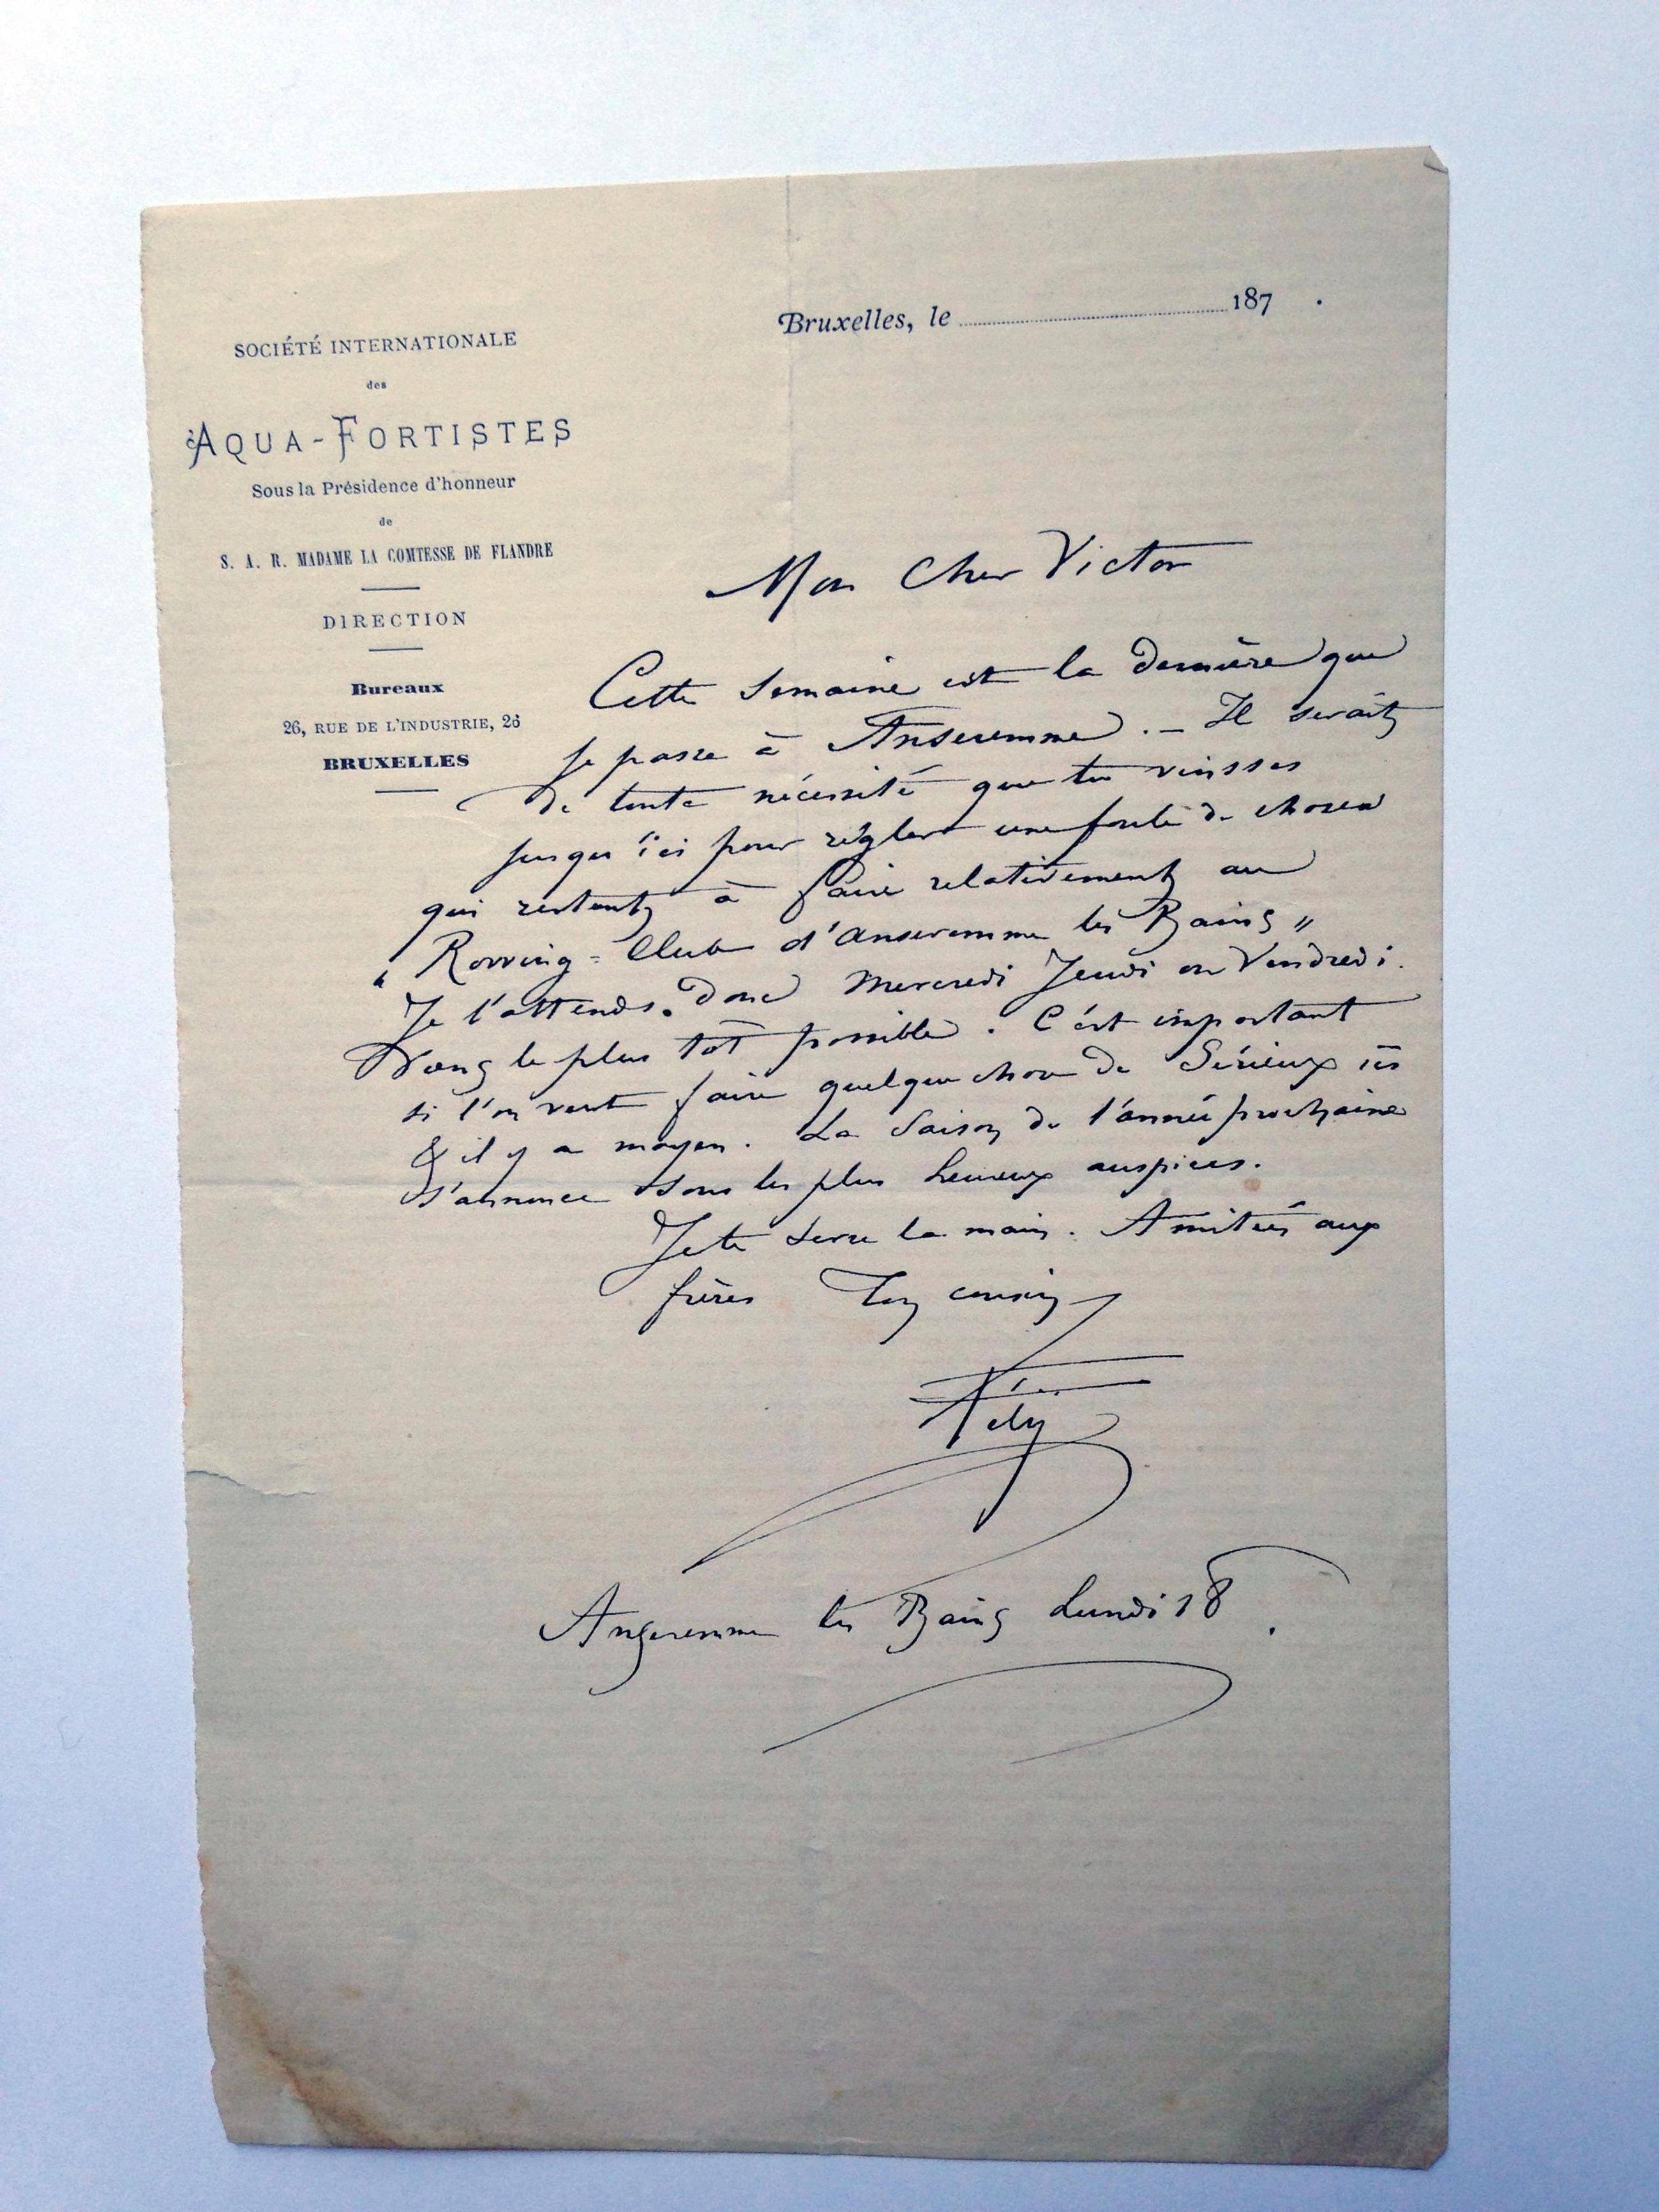 Bruxelles, le 187 .
SOCIÉTÉ INTERNATIONALE
des
AQUA-FORTISTES
Sous la Présidence d'honneur
de
S. A. R. MADAME LA COMTESSE DE FLANDRE
DIRECTION
Bureaux
26, RUE DE L'INDUSTRIE, 26
BRUXELLES
Mon Cher Victor
Cette semaine est la dernière que
je passe à Anseremme. — Il serait
de toute nécessité que tu vinsses
jusqu'ici pour régler une foule de choses
qui restent à faire relativement au
"Rowing-Club d'anseremme les Bains"
Je t'attends donc Mercredi Jeudi ou Vendredi.
Viens le plus tôt possible. C'est important
si l'on veut faire quelque chose de Sérieux ici
& il y a moyen. La Saison de l'année prochaine
s'annonce sous les plus heureux auspices.
Je te serre la main. Amitiés aux
frères Ton cousin
Fély
Anseremme les Bains Lundi 18.